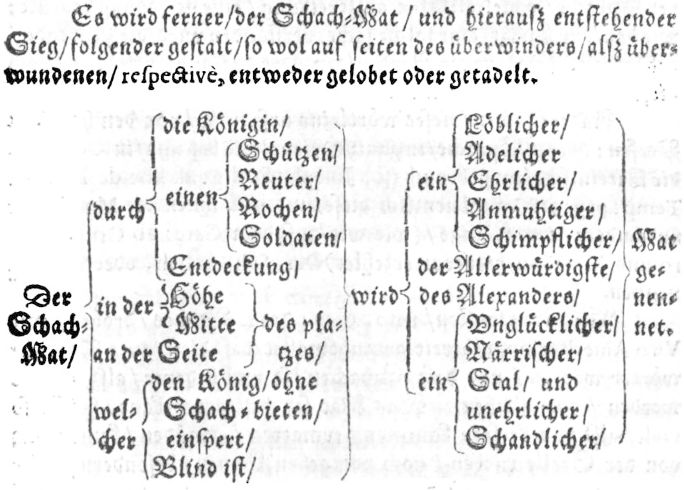 Es wird ferner/der Schach-Mat/ und hierausz entstehender
Sieg/folgender gestalt/so wol auf seiten des überwinders/alsz über-
wundenen/ respectivè, entweder gelobet oder getadelt.
die Königin/ Löblicher/
Schützen/ Adelicher
einen Reuter/ ein Ehrlicher/
durch Rochen/ Anmuhtiger/
Soldaten/ Schimpflicher/ Mat
Entdeckung/ der Allerwürdigste/ ge-
Der in der Höhe wird des Alexanders/ nen-
Schach- Mitte des pla- Vnglücklicher/ net.
Mat/ an der Seite tzes/ Närrischer/
den König/ohne ein Stal/ und
wel- Schach-bieten/ unehrlicher/
cher einspert/ Schandlicher/
Blind ist/